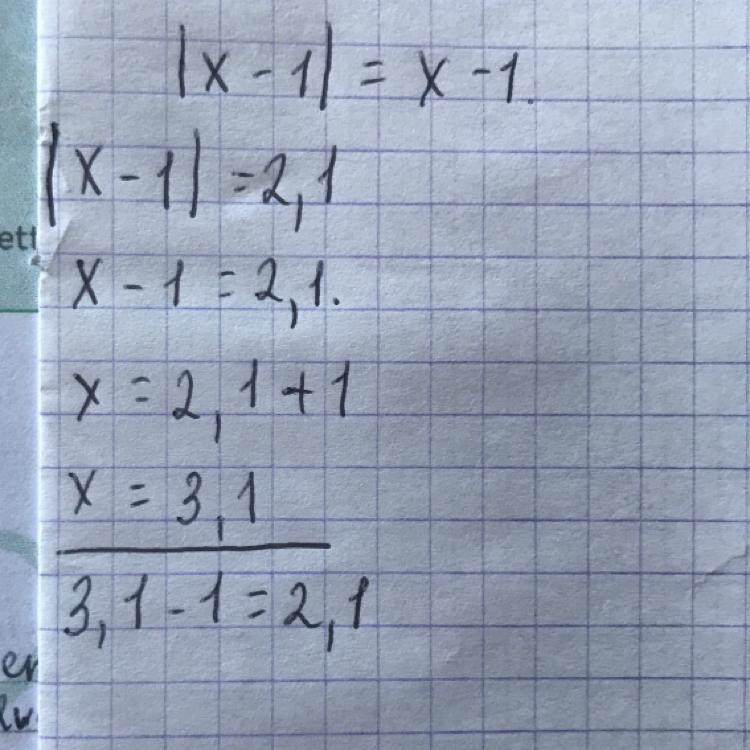 |x - 1| = x - 1.
|x - 1| = 2,1
x - 1 = 2,1.
x = 2,1 + 1
x = 3,1
3,1 - 1 = 2,1